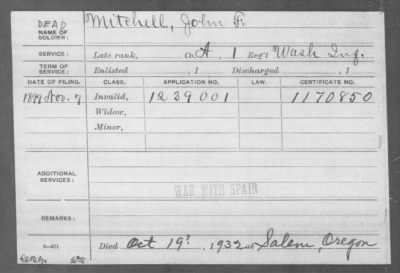 DEAD Mitchell, John F.
NAME OF SOLDIER:
SERVICE: Late rank, Co. A, 1 Reg't Wash Inf.
TERM OF SERVICE: Enlisted , 1 Discharged , 1
DATE OF FILING. CLASS. APPLICATION NO. LAW. CERTIFICATE NO.
1899 Nov. 7 Invalid, 1239001 1170850
Widow,
Minor,
ADDITIONAL SERVICES:
WAR WITH SPAIN
REMARKS:
Died Oct 19, 1932 at Salem, Oregon